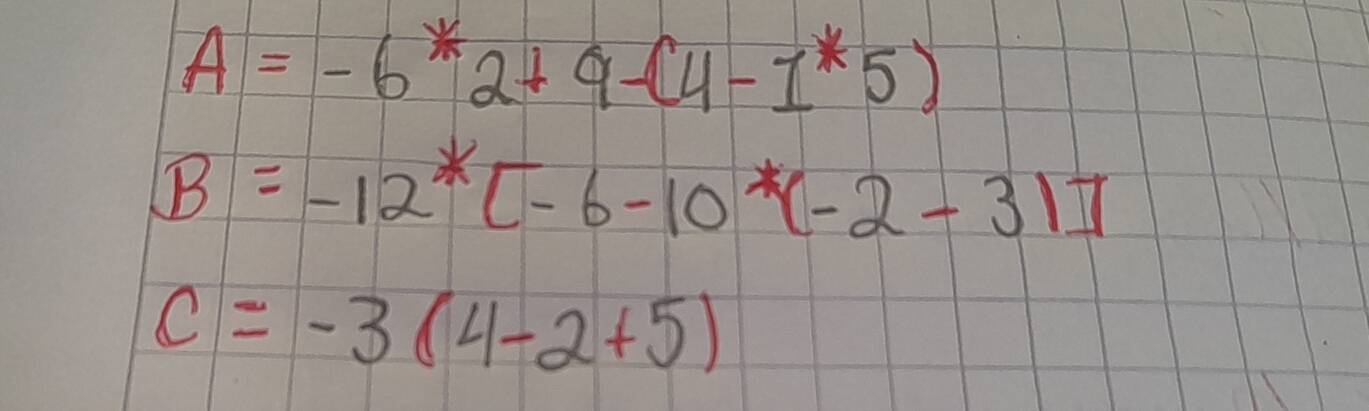 A = -6*2+9-(4-1*5)
B = -12*[-6-10*(-2-3)]
C = -3(4-2+5)